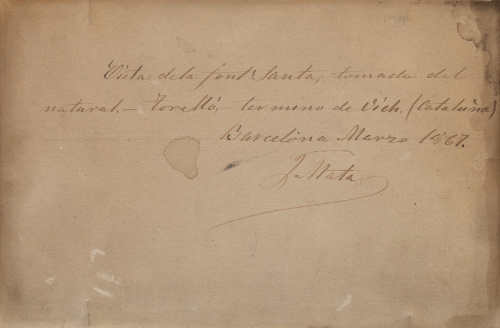 Vista de la font Santa, tomada del
natural.- Torelló,- termino de Vich. (Cataluña)
Barcelona Marzo 1867.
J. Nata